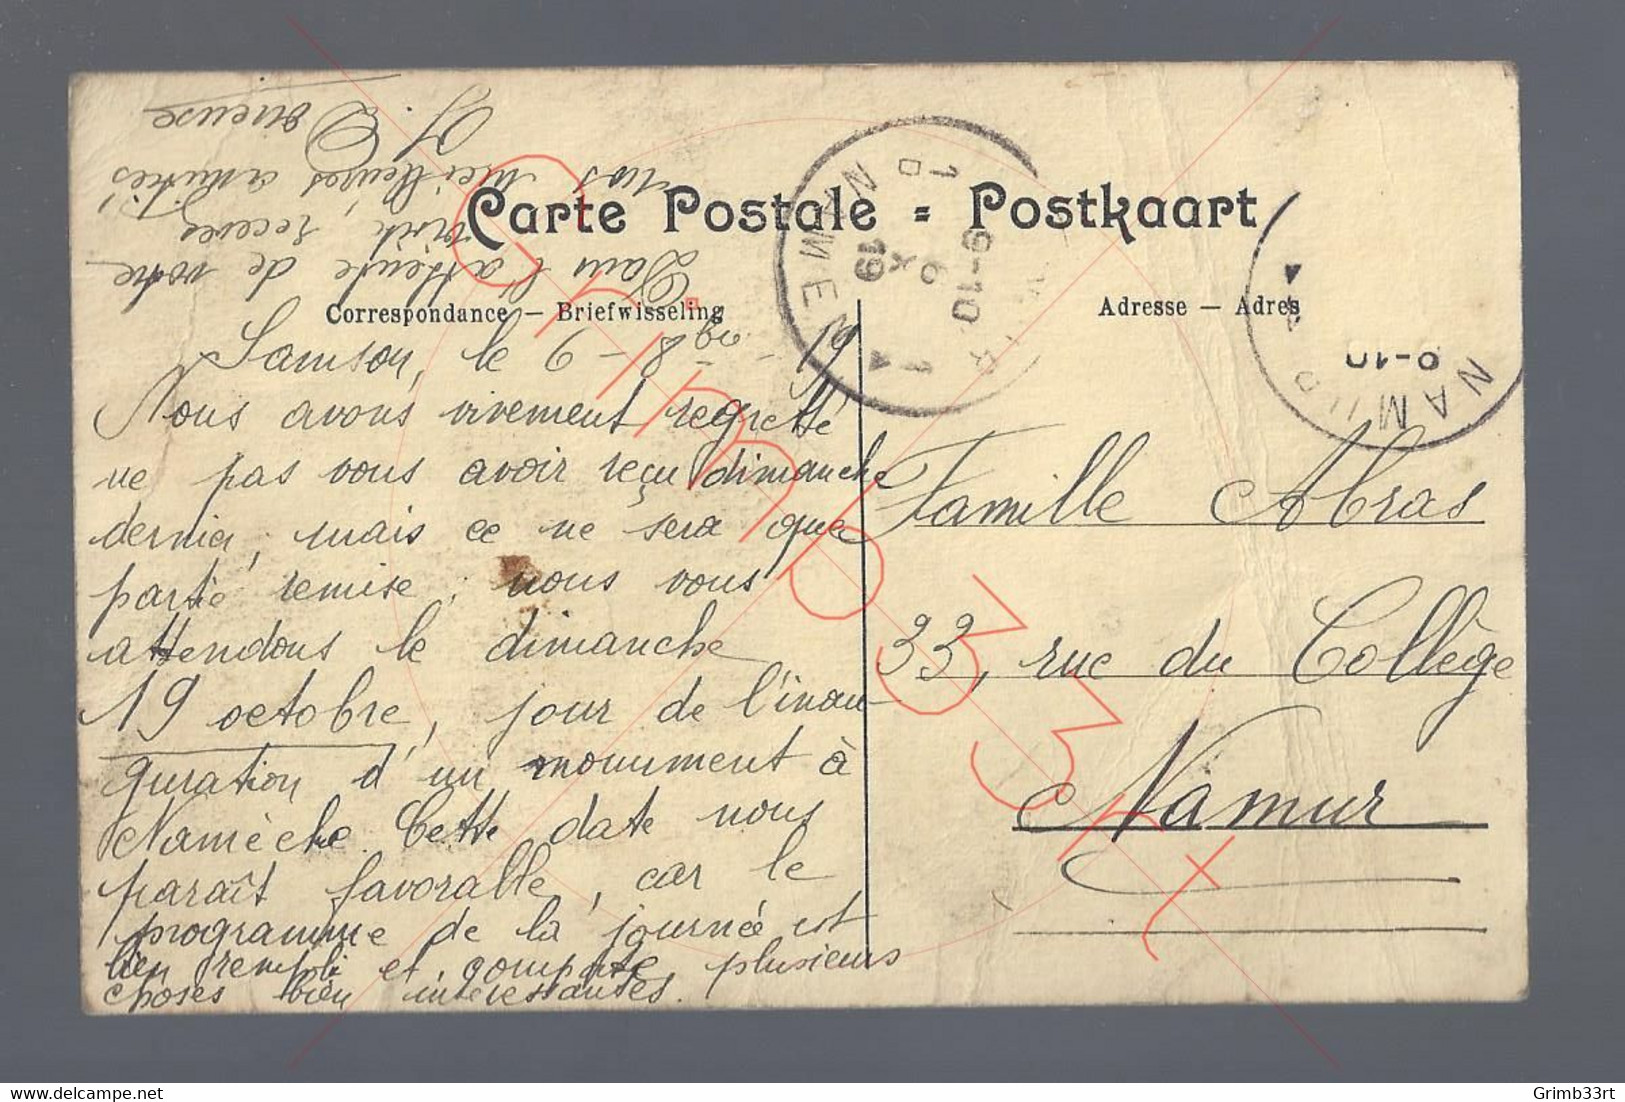 Carte Postale = Postkaart
Correspondance — Briefwisseling
Adresse — Adres
Samson, le 9 - 8bre - 19
Nous avons vivement regretté
ne pas vous avoir reçu dimanche
dernier, mais ce ne sera que
partie remise ; nous vous
attendons le dimanche
19 octobre, jour de l'inau-
guration d'un monument à
Namêche. Cette date nous
paraît favorable, car le
programme de la journée est
bien rempli et comporte plusieurs
choses bien intéressantes.
Dans l'attente de votre
visite, recevez
nos meilleures amitiés
Famille Abras
33, rue du Collège
Namur
NAMEN
1 D
9-10
6
X
19
NAMUR
9-10
Grimb33rt
Grimb33rt
delcampe.net